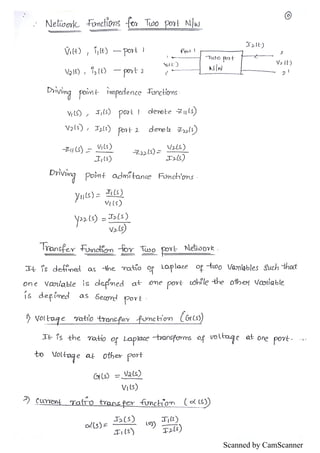 Network Functions for Two port N/w
V₁(t) , I₁(t) — port 1
V₂(t) , I₂(t) — port 2
Port 1
Two port
N/w
I₂(t)
V₂(t)
2
2'
Driving point impedence Functions
V₁(s) , I₁(s) port 1 denote Z₁₁(s)
V₂(s) , I₂(s) port 2 denote Z₂₂(s)
Z₁₁(s) = V₁(s)/I₁(s)   Z₂₂(s) = V₂(s)/I₂(s)
Driving point admitance Functions.
Y₁₁(s) = I₁(s)/V₁(s)
Y₂₂(s) = I₂(s)/V₂(s)
Transfer Function for Two port Network.
It is defined as the ratio of Laplace of two Variables such that
one Variable is defined at one port while the other Variable
is defined as second port.
1) Voltage ratio transfer function (G(s))
It is the ratio of Laplace transforms of voltage at one port
to Voltage at other port
G(s) = V₂(s)/V₁(s)
2) Current ratio transfer function (α(s))
α(s) = I₂(s)/I₁(s) (or) I₁(s)/I₂(s)
Scanned by CamScanner